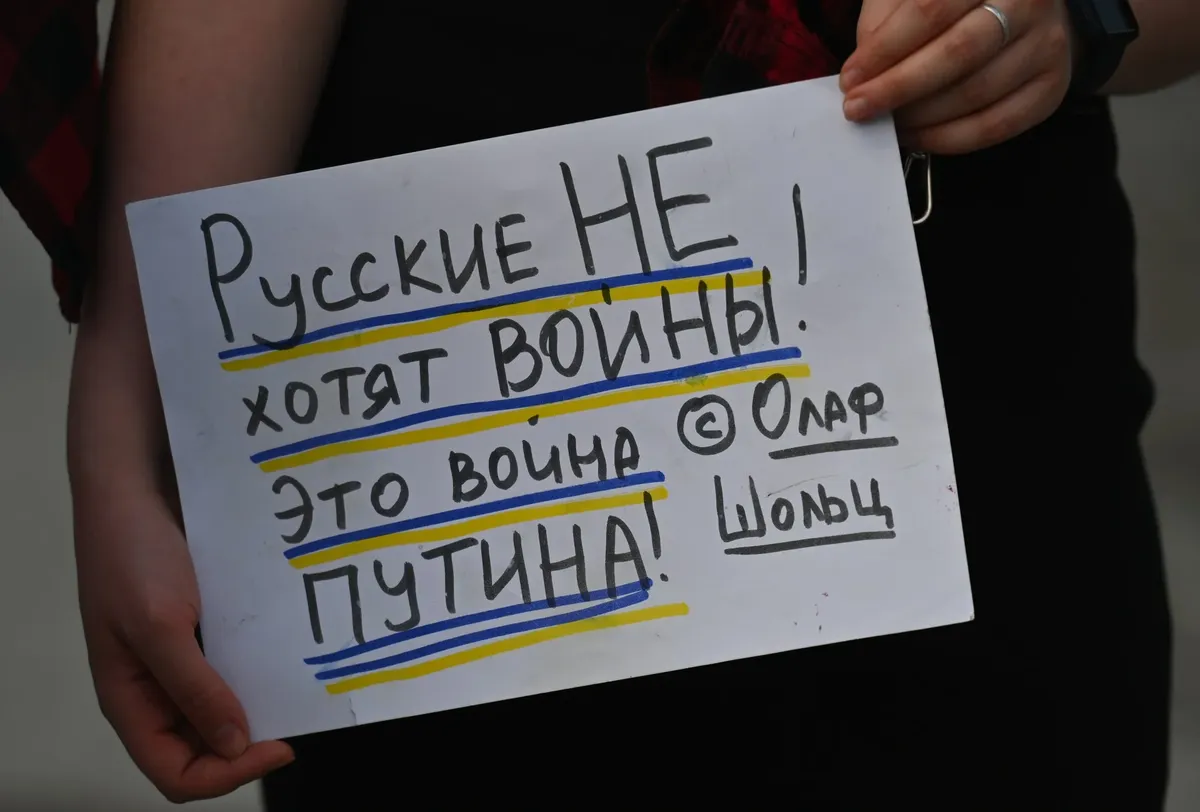 Русские НЕ
хотят ВОЙНЫ!
Это война
ПУТИНА!
© Олаф
Шольц